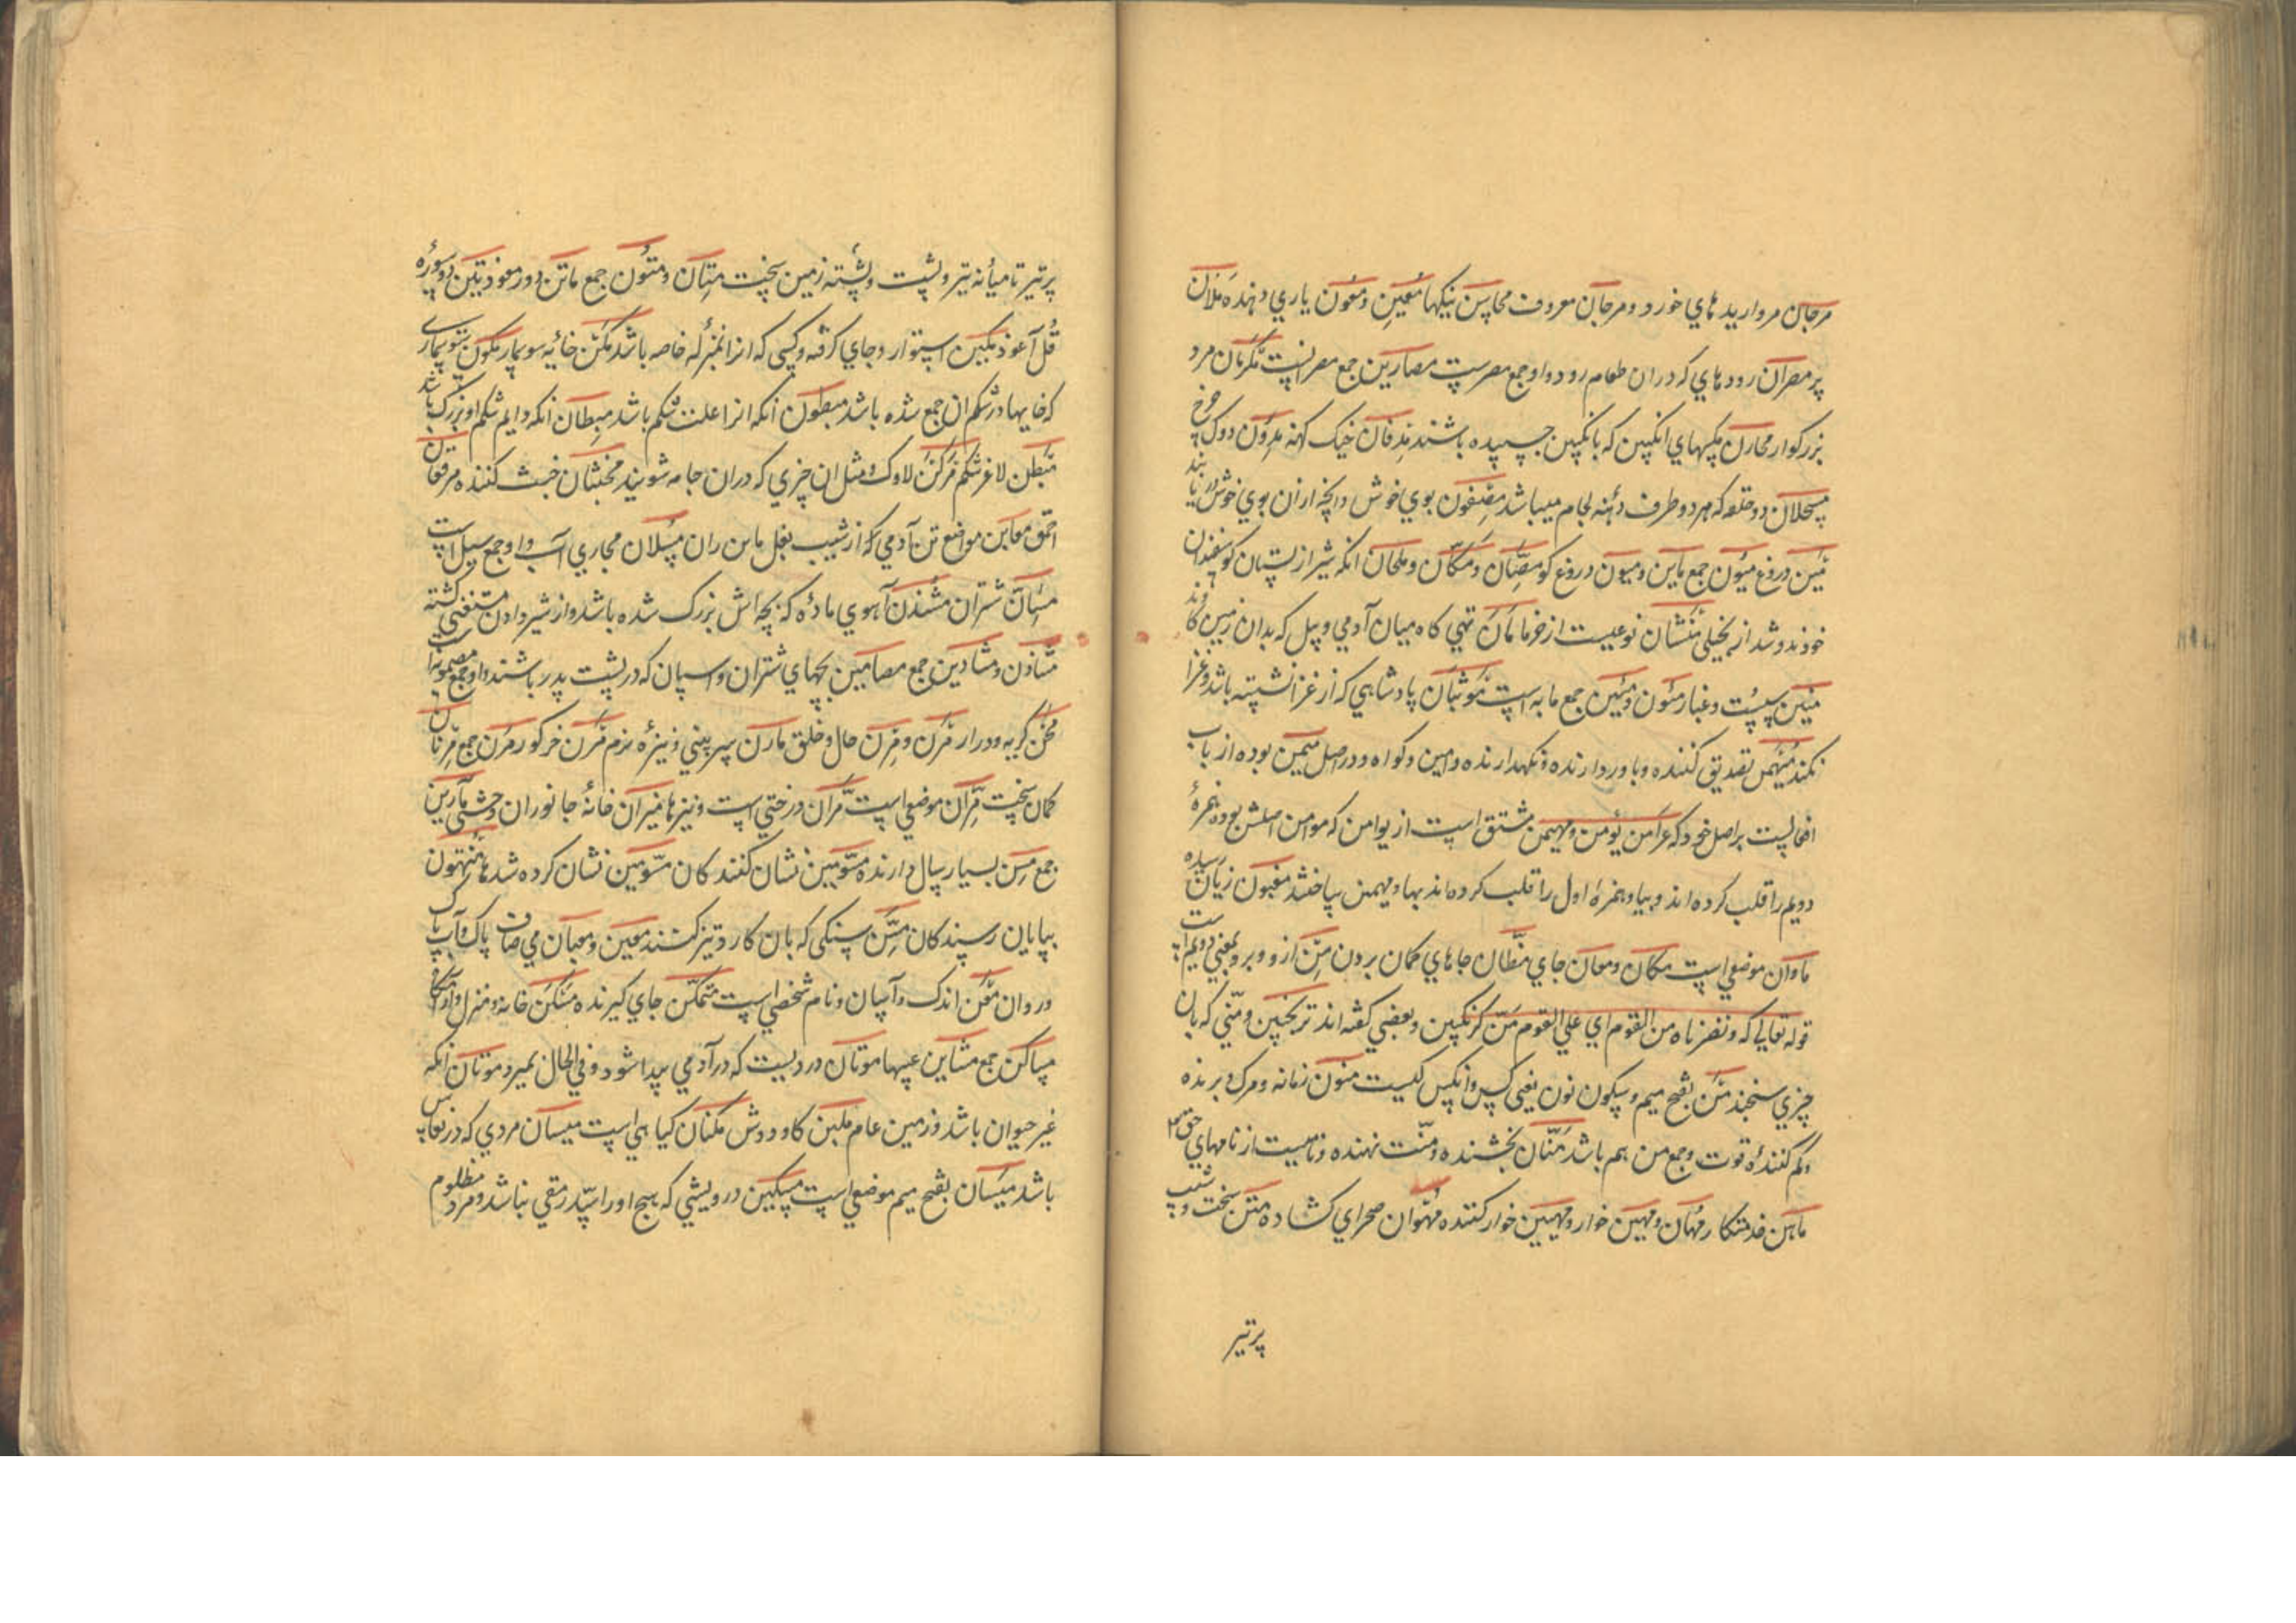 مرجان مرواریدهای خورد و مرجان معروف محاسن نیکیها معین و معون یاری دهنده ملآن
پر مصران رودهای که دران طعام رود واو جمع مصیرست مصارین جمع مصرانست مکرمان مرد
بزرکوار محارن مکسهای انکبین که بانکبین چسپیده باشند مدفان خیک کهنه مدون دوک چرخ
مسحلان دو حلقه که بهر دو طرف دهنه لجام میباشد مضفون بوی خوش وانچه ازان بوی خوش یابند
مین دروغ میون جمع ماین و میون دروغ کو مصان و مکان و ملحان انکه شیر از پستان کوسفندان
خود ندوشد از بخیلی مشان نوعیست از خرما مان تهی کاه میان آدمی و بیل که بدان زمین کاوند
منین سست و غبار مئون و مئین جمع مایه است موثبان پادشاهی که از غزا نشسته باشد و غزا
نکند مهیمن تصدیق کننده و باور دارنده و نکهدارنده و امین و کواه و در اصل میمن بوده از باب
افعالست بر اصل خود که عرآمن یؤمن و مهیمن مشتق است از یوامن که موامن اصلش بوده همزهٔ
دویم را قلب کرده اند و بیا و همزهٔ اول را قلب کرده اند بها و مهیمن ساختند مغبون زیان رسیده
ماوان موضعی است مکان و معان جای مظان جاهای کمان بردن من ازو و برو بمعنی دویم است
قوله تعالی که و نصرناه من القوم ای علی القوم من کزنکبین و بعضی کفته اند ترنجبین و منی که بان
چیزی سنجند من بفتح میم و سکون نون یعنی کس و انکس کیست منون زمانه و مرک و برنده
وکم کنندهٔ قوت و جمع من هم باشد منان بخشنده و منت نهنده و نامیست از نامهای حق
ماهن خدمتکار مهان و مهین خوار و مهین خوار کننده مهوان صحرای کشاده متن سخت و شیب
پر تیر
پر تیر تا میانه تیر و پشت و پشته زمین سخت متان و متون جمع ماتن دور معوذتین دو سوره
قل اعوذ مکین استوار و جای کرفته و کسی که انرا نمبرله خاصه باشد مکن خائه سوسمار مکون سوسماری
که خایها در شکم ان جمع شده باشد مبطون انکه انرا علت شکم باشد مبطان انکه دایم شکم او بزرک باشد
مبطن لاغر شکم مرکن لاوک و مثل ان چیزی که دران جامه شویند مخبثان خبث کننده مرقعان
احمق مغابن مواضع تن آدمی که از شیب بغل ما بن ران مسلان مجاری آب واو جمع سیل است
مسان شتران مشدن آهوی ماده که بچه اش بزرک شده باشد و از شیر دادن مستغنی کشته
مشادن و مشادین جمع مضامین بچهای شتران و اسپان که در پشت پدر باشند واو جمع مضمونست
مخن کریه و دراز مرن و مرن حال و خلق مارن سر بینی و نیزهٔ نرم مرن خرکور مرن جمع مرنان
کمان سخت مران موضعی است مران درختی است و نیزها میران خانهٔ جانوران وحشی مآرین
جمع مسن بسیار سال دارنده مسومین نشان کنندکان مسومین نشان کرده شدها منتهون
بپایان رسیدکان مسن سنکی که بان کارد تیز کنند معین و معیان می صاف پاک و آب پاک
و روان معن اندک و آسان و نام شخصی است متمکن جای کیرنده مسکن خانه و منزل و آرامکاه
مساکن جمع مشاین عیبها موتان دردیست که در آدمی پیدا شود و فی الحال بمیرد موتان انکه
غیر حیوان باشد و زمین عام ملبن کاو دوش مکنان کیاهی است میسان مردی که در نعاس
باشد میسان بفتح میم موضعی است مسکین درویشی که هیچ او را سد رمقی نباشد و مرد مظلوم